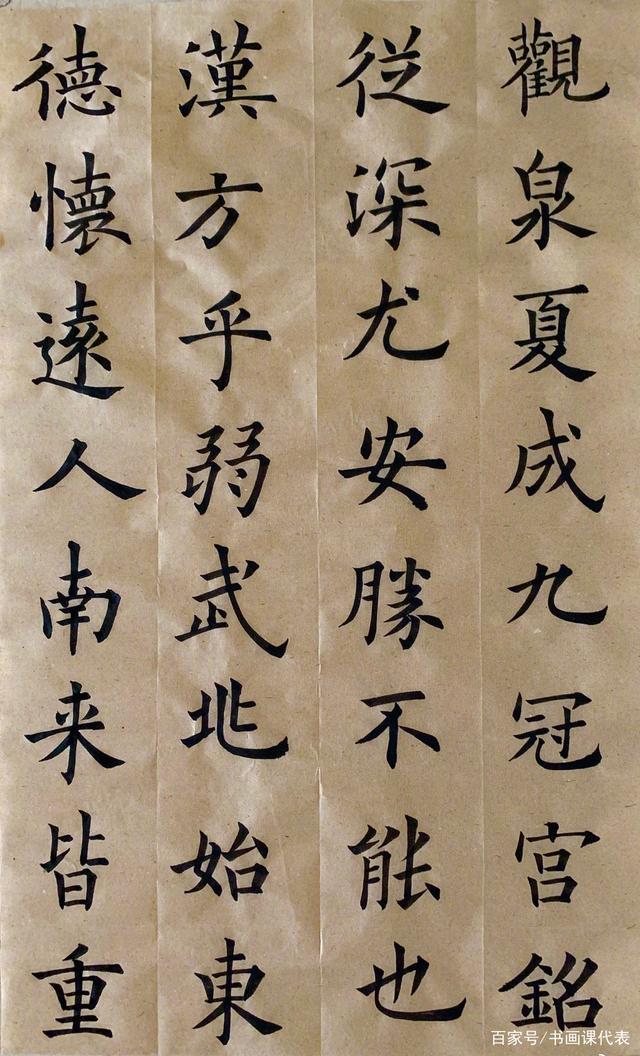 觀泉夏成九冠宫銘
從深尤安勝不能也
漢方乎弱武北始東
德懷遠人南来皆重
百家号/书画课代表